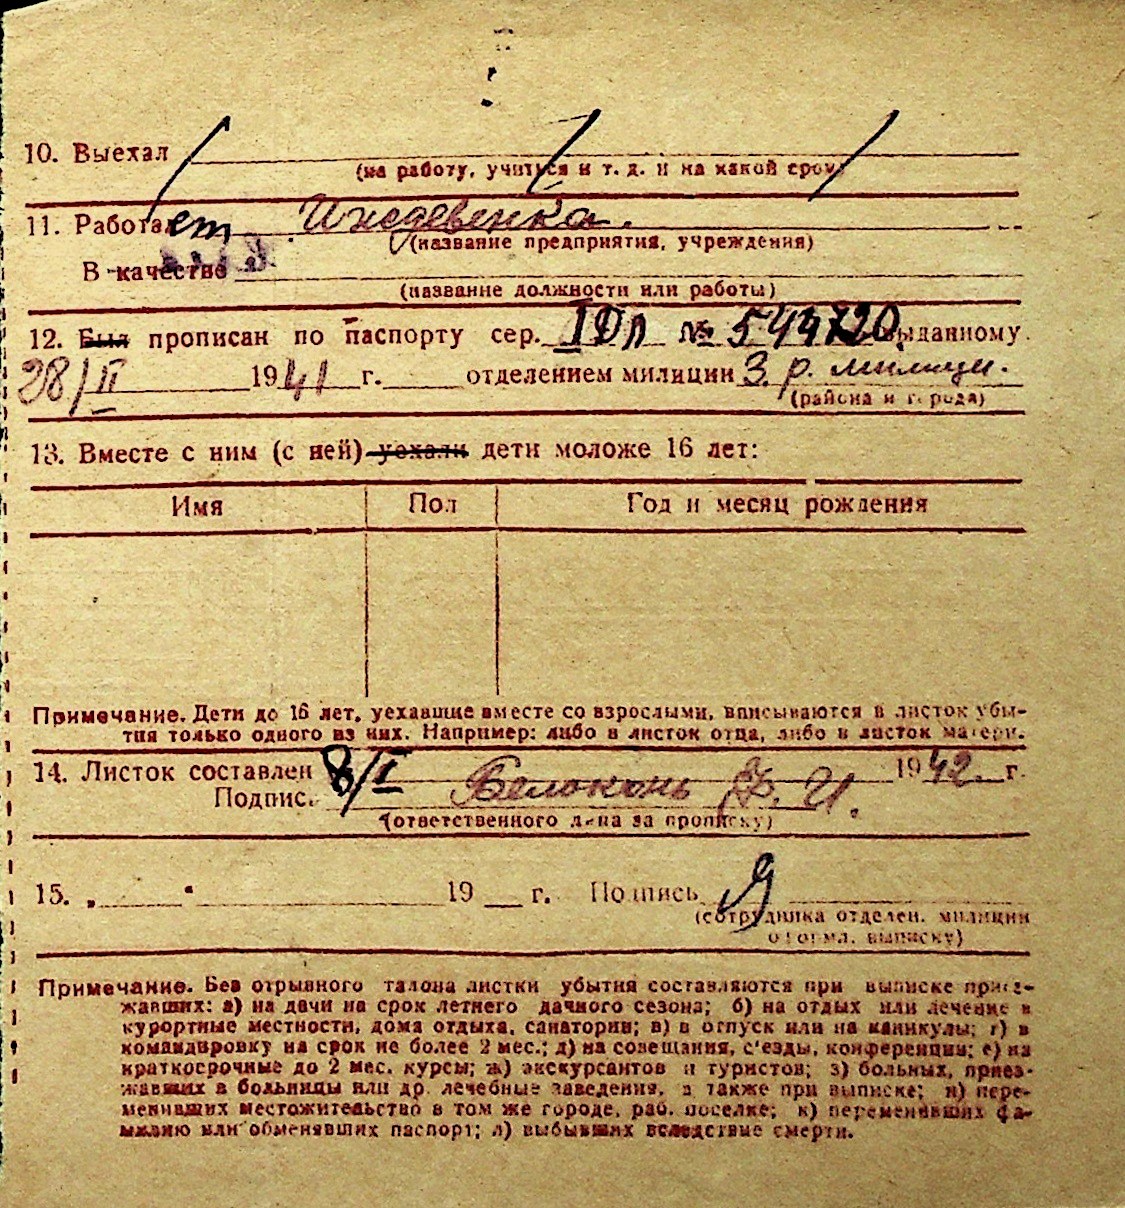 10. Выехал
(на работу, учиться и т. д. и на какой срок)
11. Работает Иждевенка.
(название предприятия, учреждения)
В качестве
(название должности или работы)
12. Был прописан по паспорту сер. IДЛ № 544720 выданному
28/II 1941 г. отделением милиции 3. р. милици.
(района и города)
13. Вместе с ним (с ней) уехали дети моложе 16 лет:
Имя Пол Год и месяц рождения
Примечание. Дети до 16 лет, уехавшие вместе со взрослыми, вписываются в листок убы-
тия только одного из них. Например: либо в листок отца, либо в листок матери.
14. Листок составлен 8/I 1942 г.
Подпись Белоконь Ф. И.
(ответственного лица за прописку)
15. „ “ 19 г. Подпись
(сотрудника отделен. милиции
оформл. выписку)
Примечание. Без отрывного талона листки убытия составляются при выписке приез-
жавших: а) на дачи на срок летнего дачного сезона; б) на отдых или лечение в
курортные местности, дома отдыха, санатории; в) в отпуск или на каникулы; г) в
командировку на срок не более 2 мес.; д) на совещания, с'езды, конференции; е) на
краткосрочные до 2 мес. курсы; ж) экскурсантов и туристов; з) больных, приез-
жавших в больницы или др. лечебные заведения, а также при выписке; и) пере-
менивших местожительство в том же городе, раб. поселке; к) переменивших фа-
милию или обменявших паспорт; л) выбывших вследствие смерти.